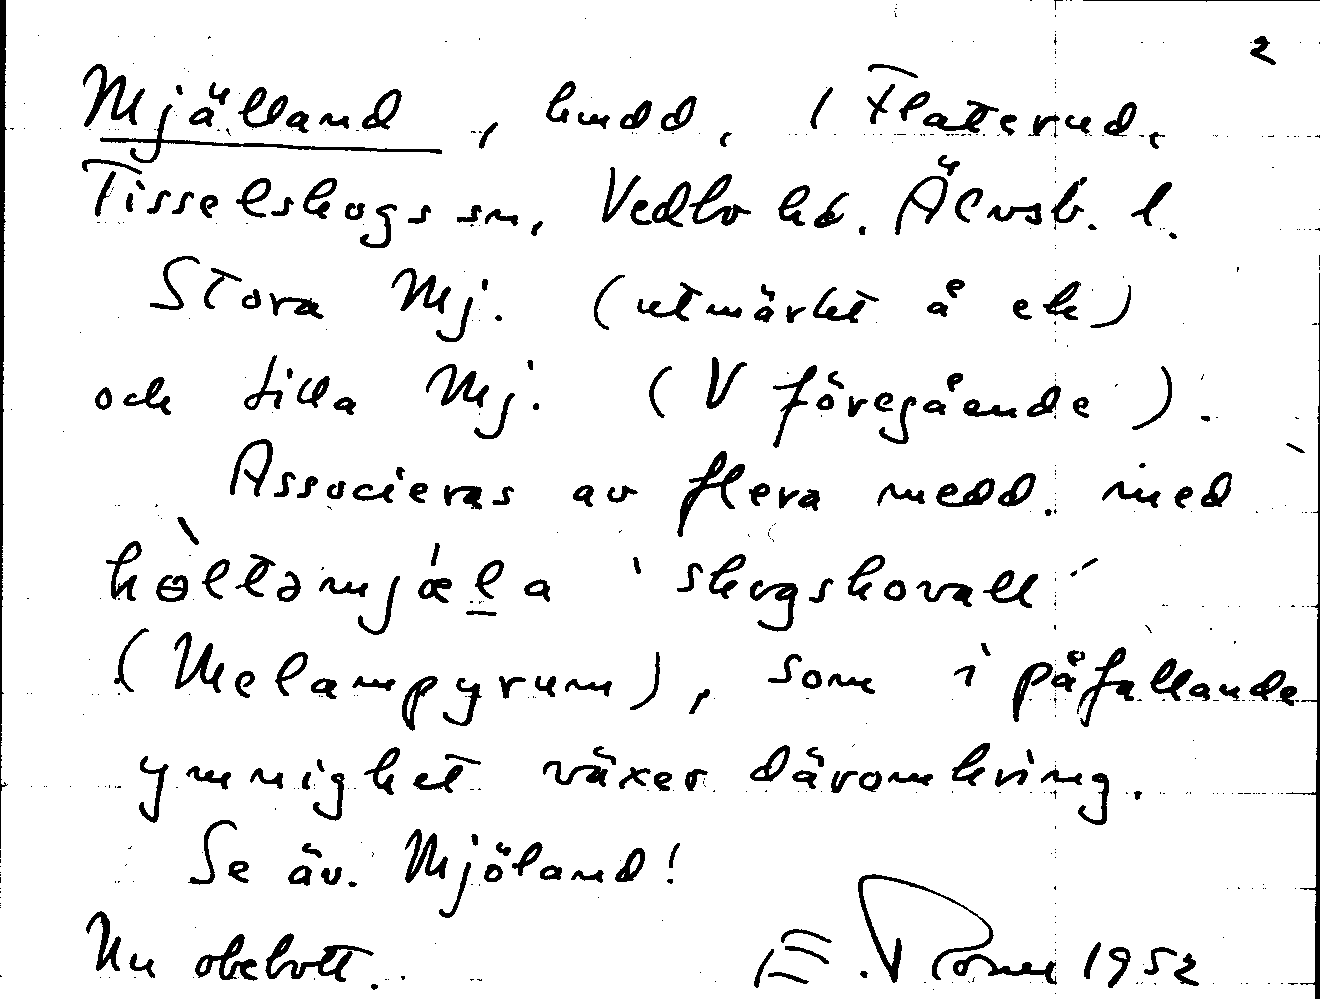 2
Mjälland, hmdd, i Flaterud,
Tisselskogs sn, Vedbo hd. Älvsb. l.
Stora Mj. (utmärkt å ek)
och Lilla Mj. (V föregående).
Associeras av flera medd. med
hɵ̀ltəmjǽl̲a 'skogskovall'
(Melampyrum), som i påfallande
ymnighet växer däromkring.
Se äv. Mjöland!
Nu obebott. E. 1952